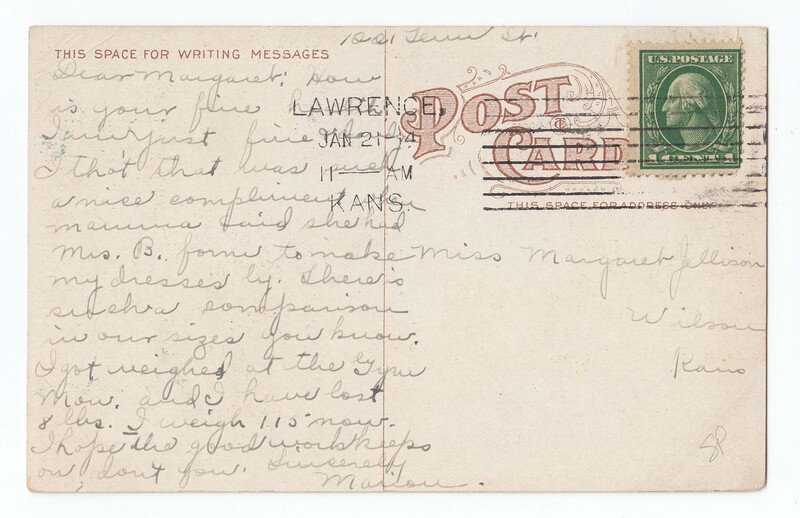 1221 Tenn St.
THIS SPACE FOR WRITING MESSAGES
Dear Margaret: How
is your fine
I am just fine
I thot that was
a nice compliment
mamma said she had
Mrs. B. form to make
my dresses by. There is
such a comparison
in our sizes you know.
I got weighed at the Gym
Mon. and I have lost
8 lbs. I weigh 115 now.
I hope the good work keeps
on, don't you. Sincerely
Marion.
LAWRENCE,
JAN 21 14
11 AM
KANS.
POST CARD
U.S. POSTAGE
1 CENT 1
THIS SPACE FOR ADDRESS ONLY
Miss Margaret Jellison
Wilson
Kans